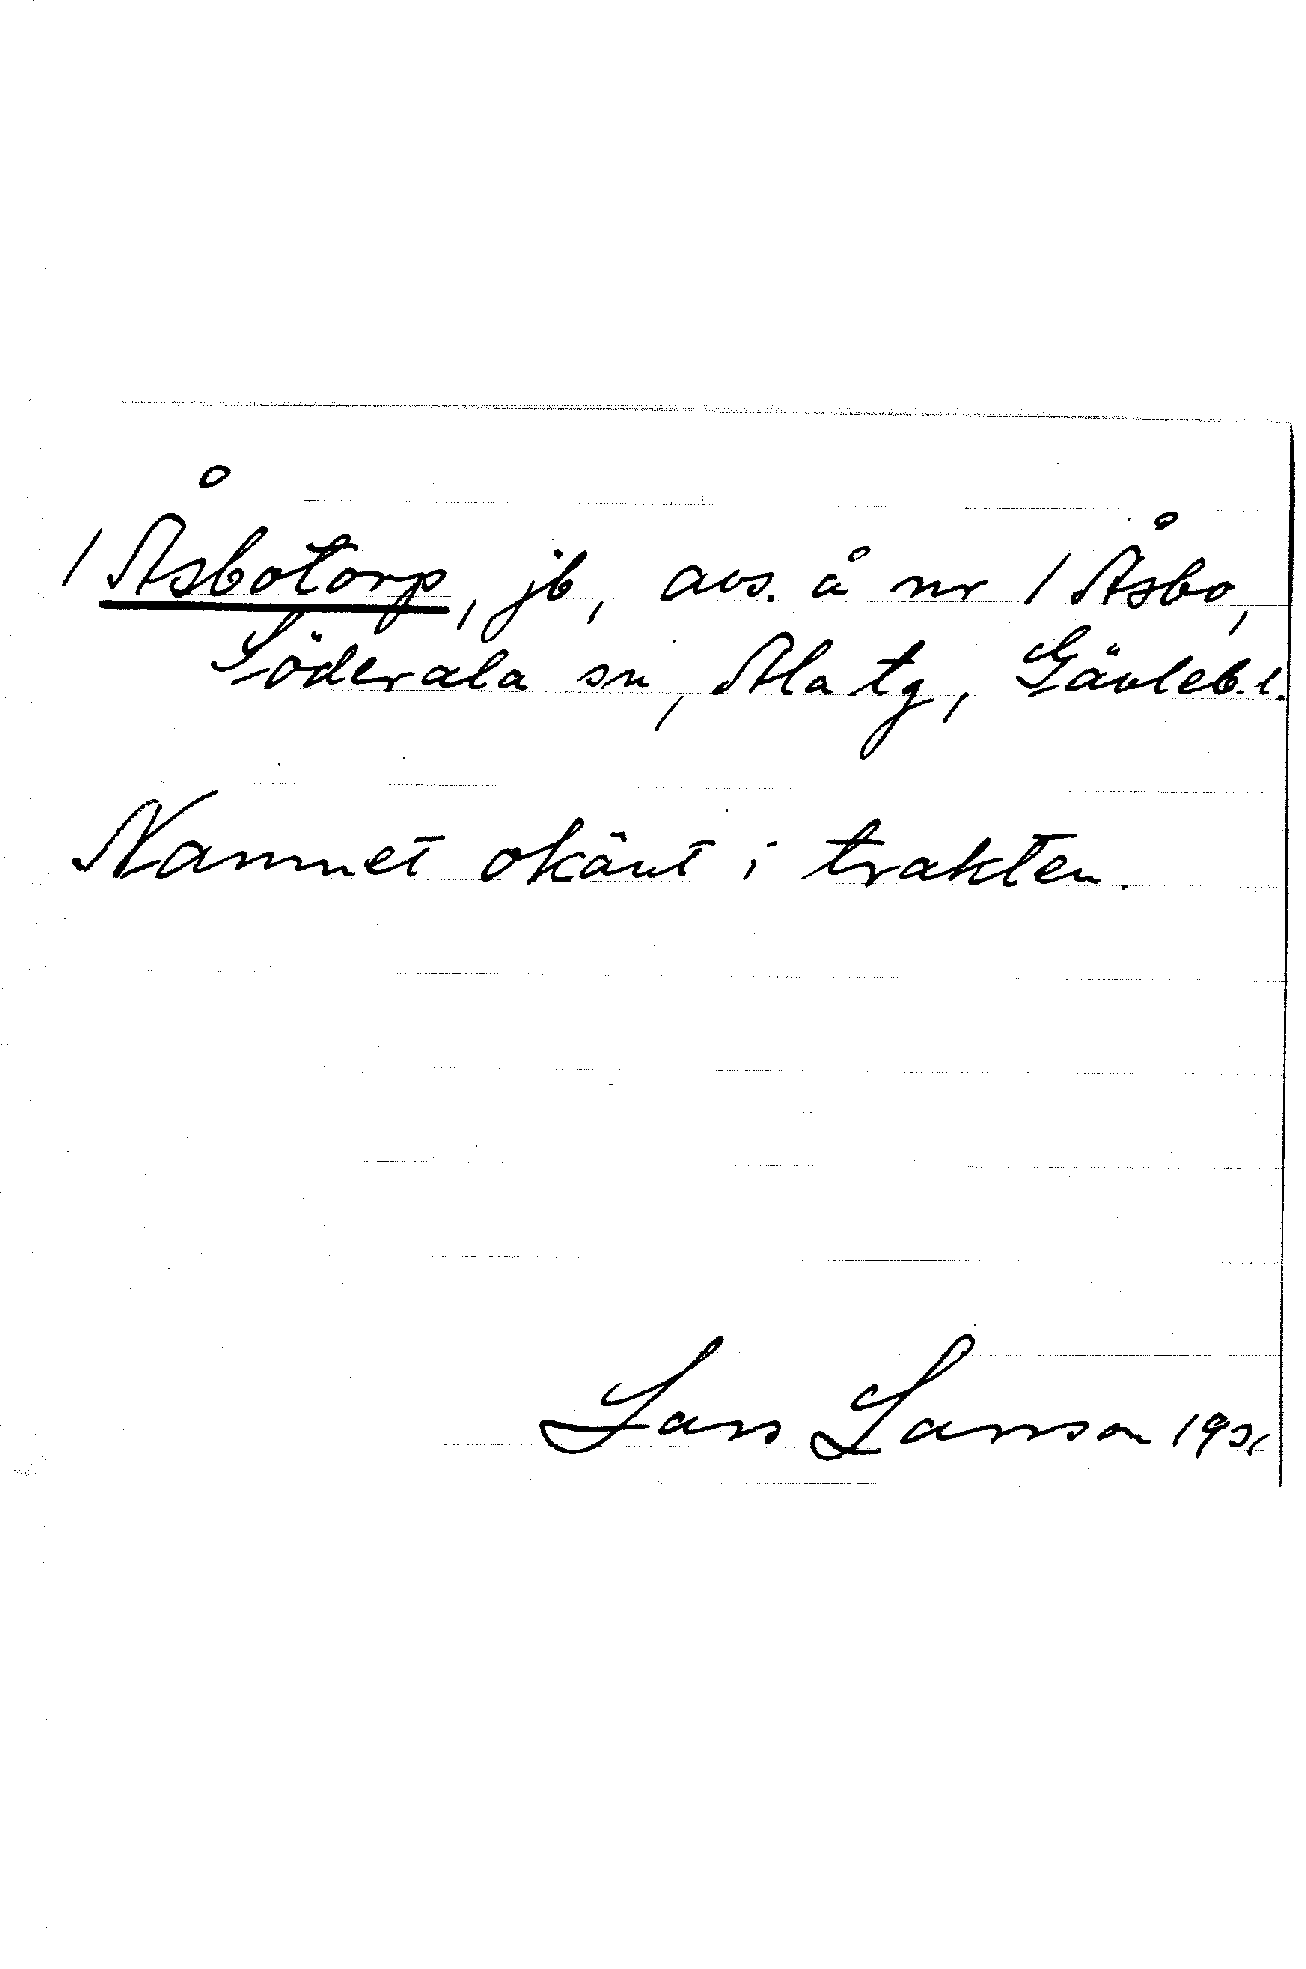 1 Åsbotorp, jb, avs. å nr 1 Åsbo,
Söderala sn, Ala tg, Gävleb.l.
Namnet okänt i trakten.
Lars Larsson